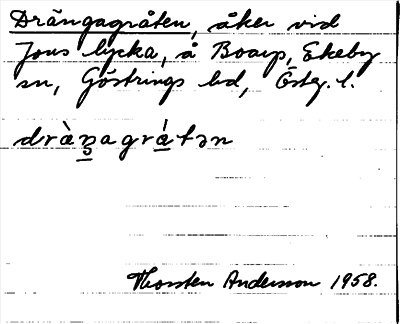 Drängagråten, åker vid
Jons lycka, å Boarp, Ekeby
sn, Göstrings hd, Österg. l.
dràŋagrátən
Thorsten Andersson 1958.